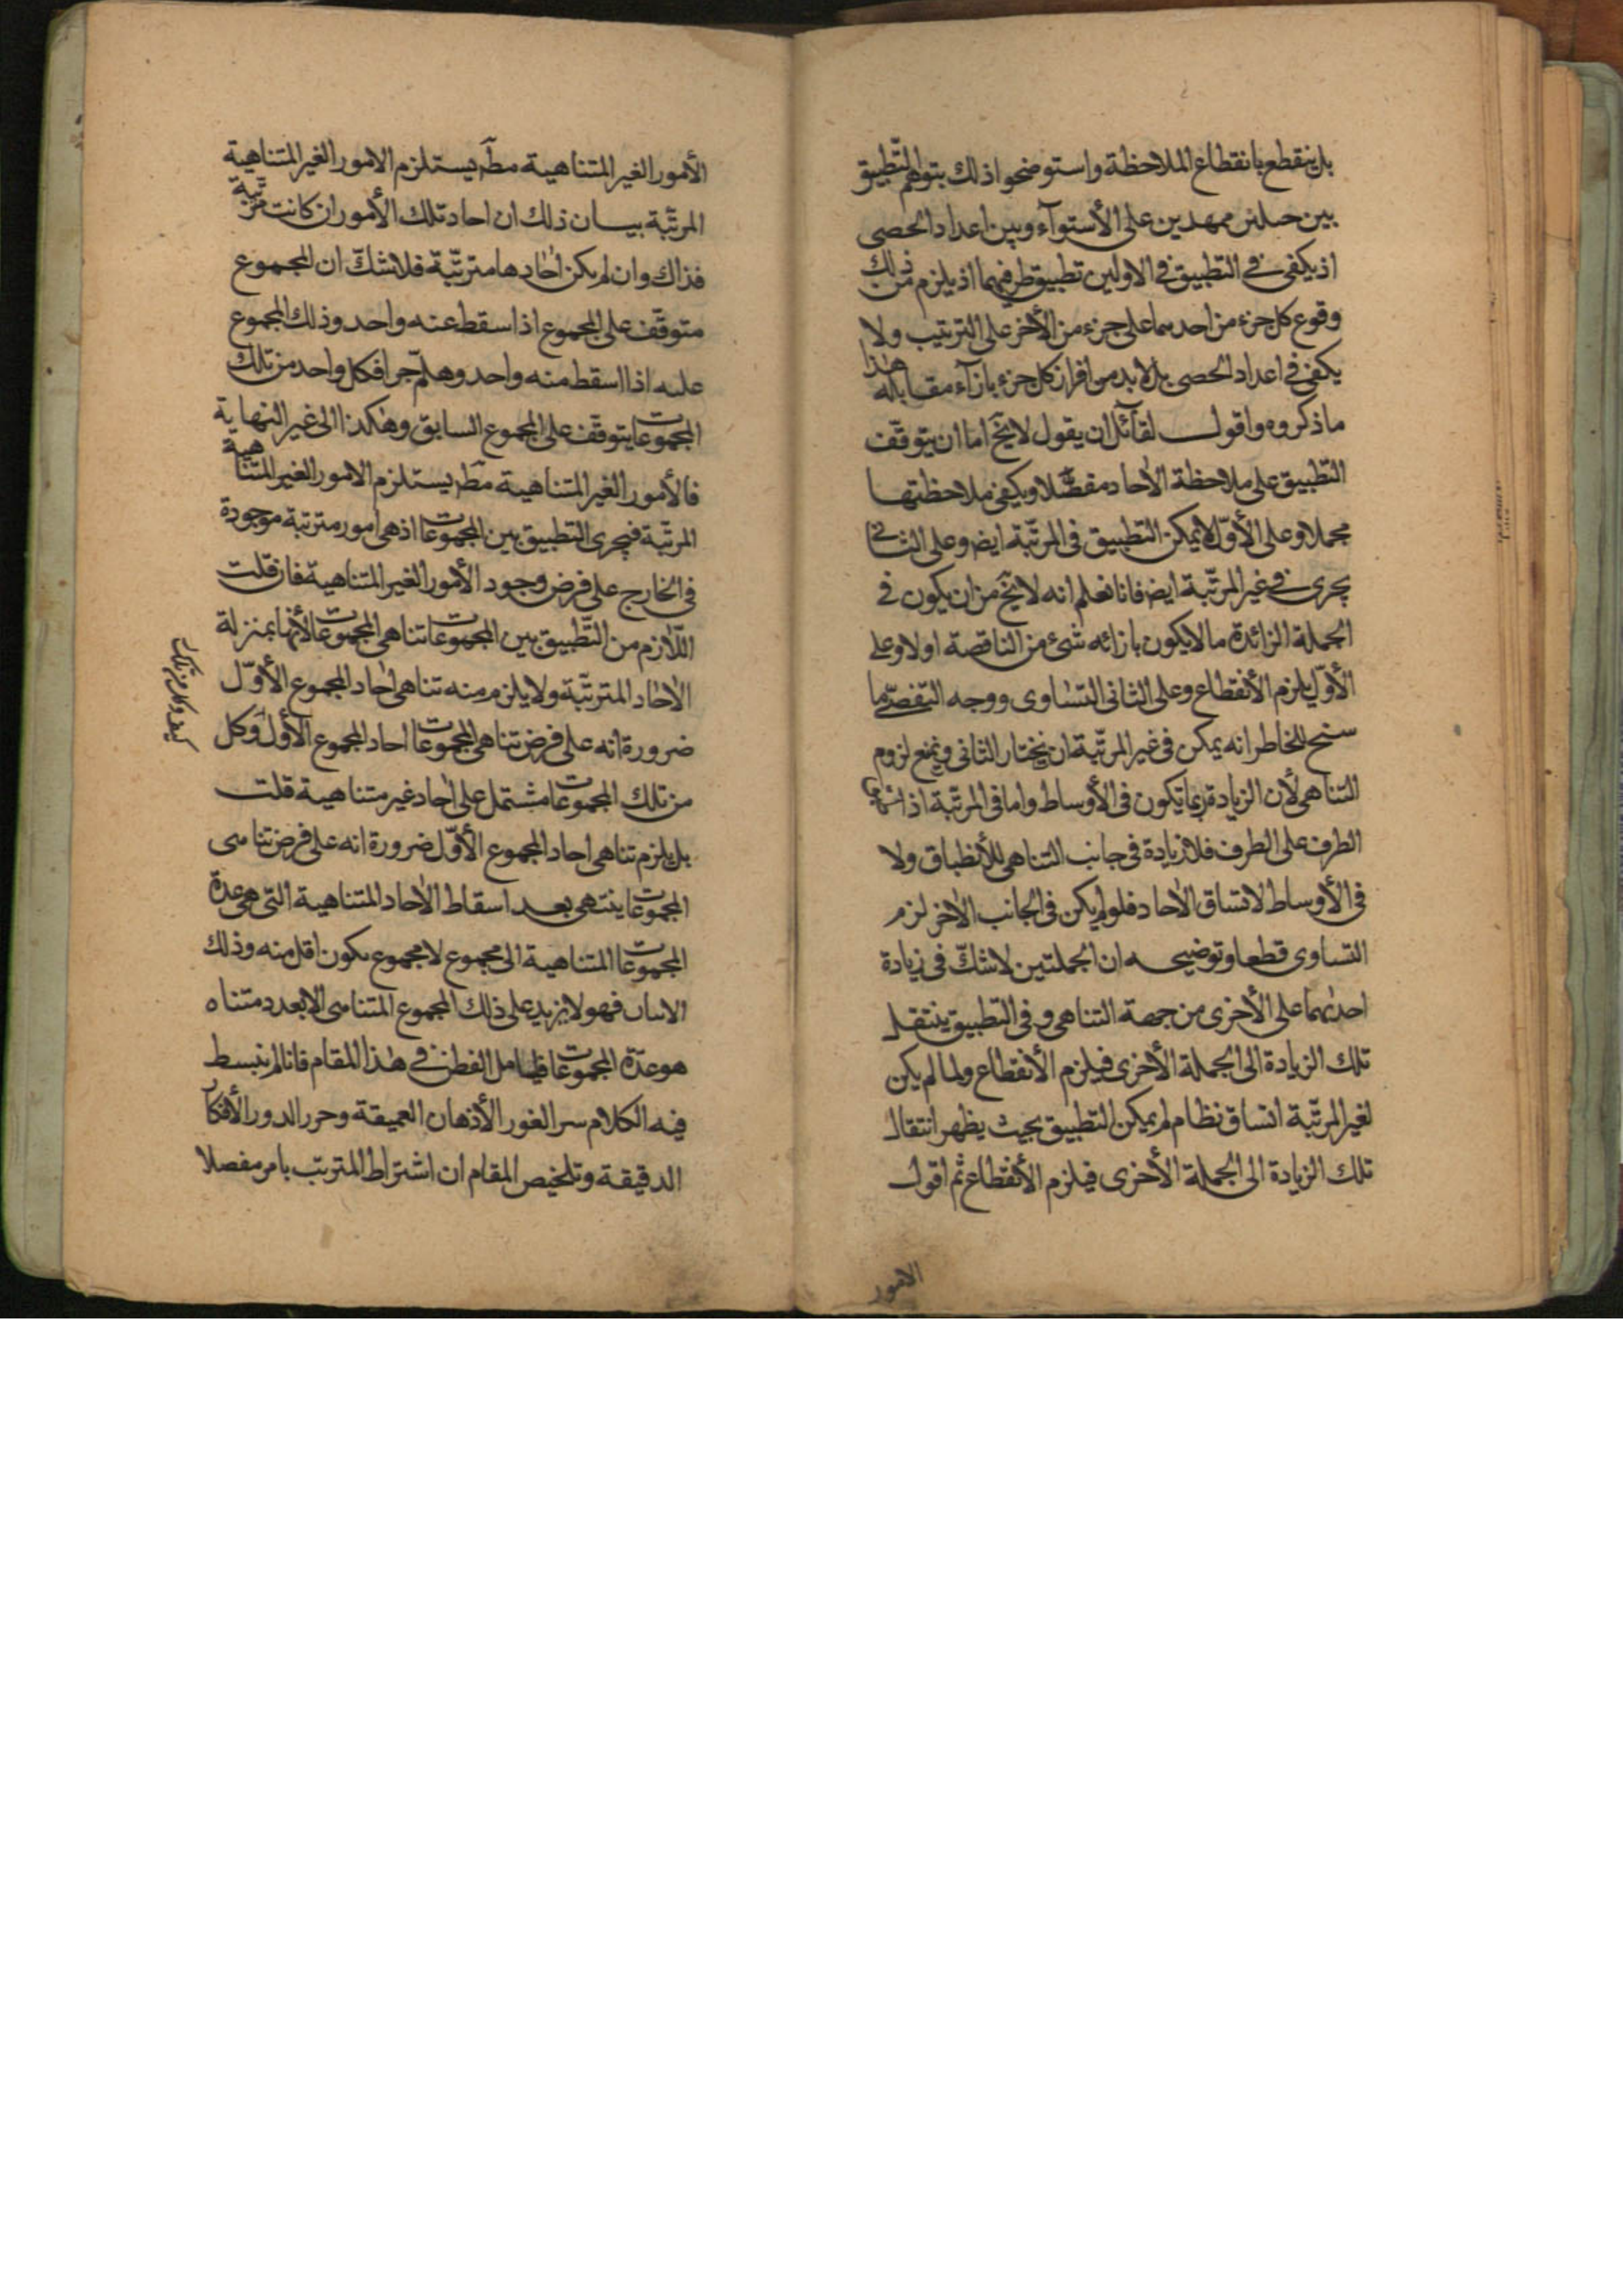 بل ينقطع بانقطاع الملاحظة واستوضحوا ذلك بتوهم التّطبيق
بين حبلين ممهدين على الأستوآء وبين اعداد الحصى
اذ يكفى فى التطبيق فى الاولين تطبيق طرفيهما اذ يلزم من ذلك
وقوع كل جزء من احدهما على جزء من الأخر على الترتيب ولا
يكفى فى اعداد الحصى بل لابد من افراز كل جزء بازآء مقابله هذا
ما ذكروه واقول لقآئل ان يقول لا يخ اما ان يتوقّف
التّطبيق على ملاحظة الأحاد مفصّلا او يكفى ملاحظتها
مجملا وعلى الأوّل لا يمكن التطبيق فى المرتّبة ايض وعلى الثانى
يجرى فى غير المرتّبة ايض فانا نعلم انه لا يخ من ان يكون فى
الجملة الزائدة ما لا يكون بازائه شىء من الناقصة اولا وعلى
الأوّل يلزم الأنقطاع وعلى الثانى التساوى ووجه التفصّى ما
سنح للخاطر انه يمكن فى غير المرتّبة ان يختار الثانى ويمنع لزوم
التناهى لأن الزيادة ربما يكون فى الأوساط واما فى المرتّبة اذا
الطرف على الطرف فلا زيادة فى جانب التناهى للأنطباق ولا
فى الأوساط لاتساق الأحاد فلو لم يكن فى الجانب الأخر لزم
التساوى قطعا وتوضيحه ان الجملتين لا شكّ فى زيادة
احديهما على الأخرى من جهة التناهى وفى التطبيق ينتقل
تلك الزيادة الى الجملة الأخرى فيلزم الأنقطاع ولما لم يكن
لغير المرتّبة اتساق نظام لم يمكن التطبيق بحيث يظهر انتقال
تلك الزيادة الى الجملة الأخرى فيلزم الأنقطاع ثم اقول
الامور
الأمور الغير المتناهية مطّ يستلزم الامور الغير المتناهية
المرتّبة بيان ذلك ان احاد تلك الأمور ان كانت مترتّبة
فذاك وان لم يكن احادها مترتّبة فلا شكّ ان المجموع
متوقّف على المجموع اذا سقط عنه واحد وذلك المجموع
عليه اذا اسقط منه واحد وهلمّ جرا فكل واحد من تلك
المجموعات يتوقّف على المجموع السابق وهكذا الى غير النهاية
فالأمور الغير المتناهية مطّ يستلزم الامور الغير المتناهية
المرتّبة فيجرى التطبيق بين المجموعات اذ هى امور مترتبة موجودة
فى الخارج على فرض وجود الأمور الغير المتناهية فان قلت
اللّازم من التّطبيق بين المجموعات تناهى المجموعات لأنها بمنزلة
الأحاد المترتّبة ولا يلزم منه تناهى احاد المجموع الأوّل
ضرورة انه على فرض تناهى المجموعات احاد المجموع الأوّل وكل
من تلك المجموعات مشتمل على احاد غير متناهية قلت
بل يلزم تناهى احاد المجموع الأوّل ضرورة انه على فرض تناهى
المجموعات ينتهى بعد اسقاط الأحاد المتناهية التى هى عدة
المجموعات المتناهية الى مجموع لا مجموع يكون اقل منه وذلك
الاثنان فهو لا يزيد على ذلك المجموع المتناهى الا بعدد متناه
هو عدّة المجموعات فليتامل الفطن فى هذا المقام فانا لم نبسط
فيه الكلام سر الغور الأذهان العميقة وحرر الدور الأفكار
الدقيقة وتلخيص المقام ان اشتراط المترتب بامر مفصلا